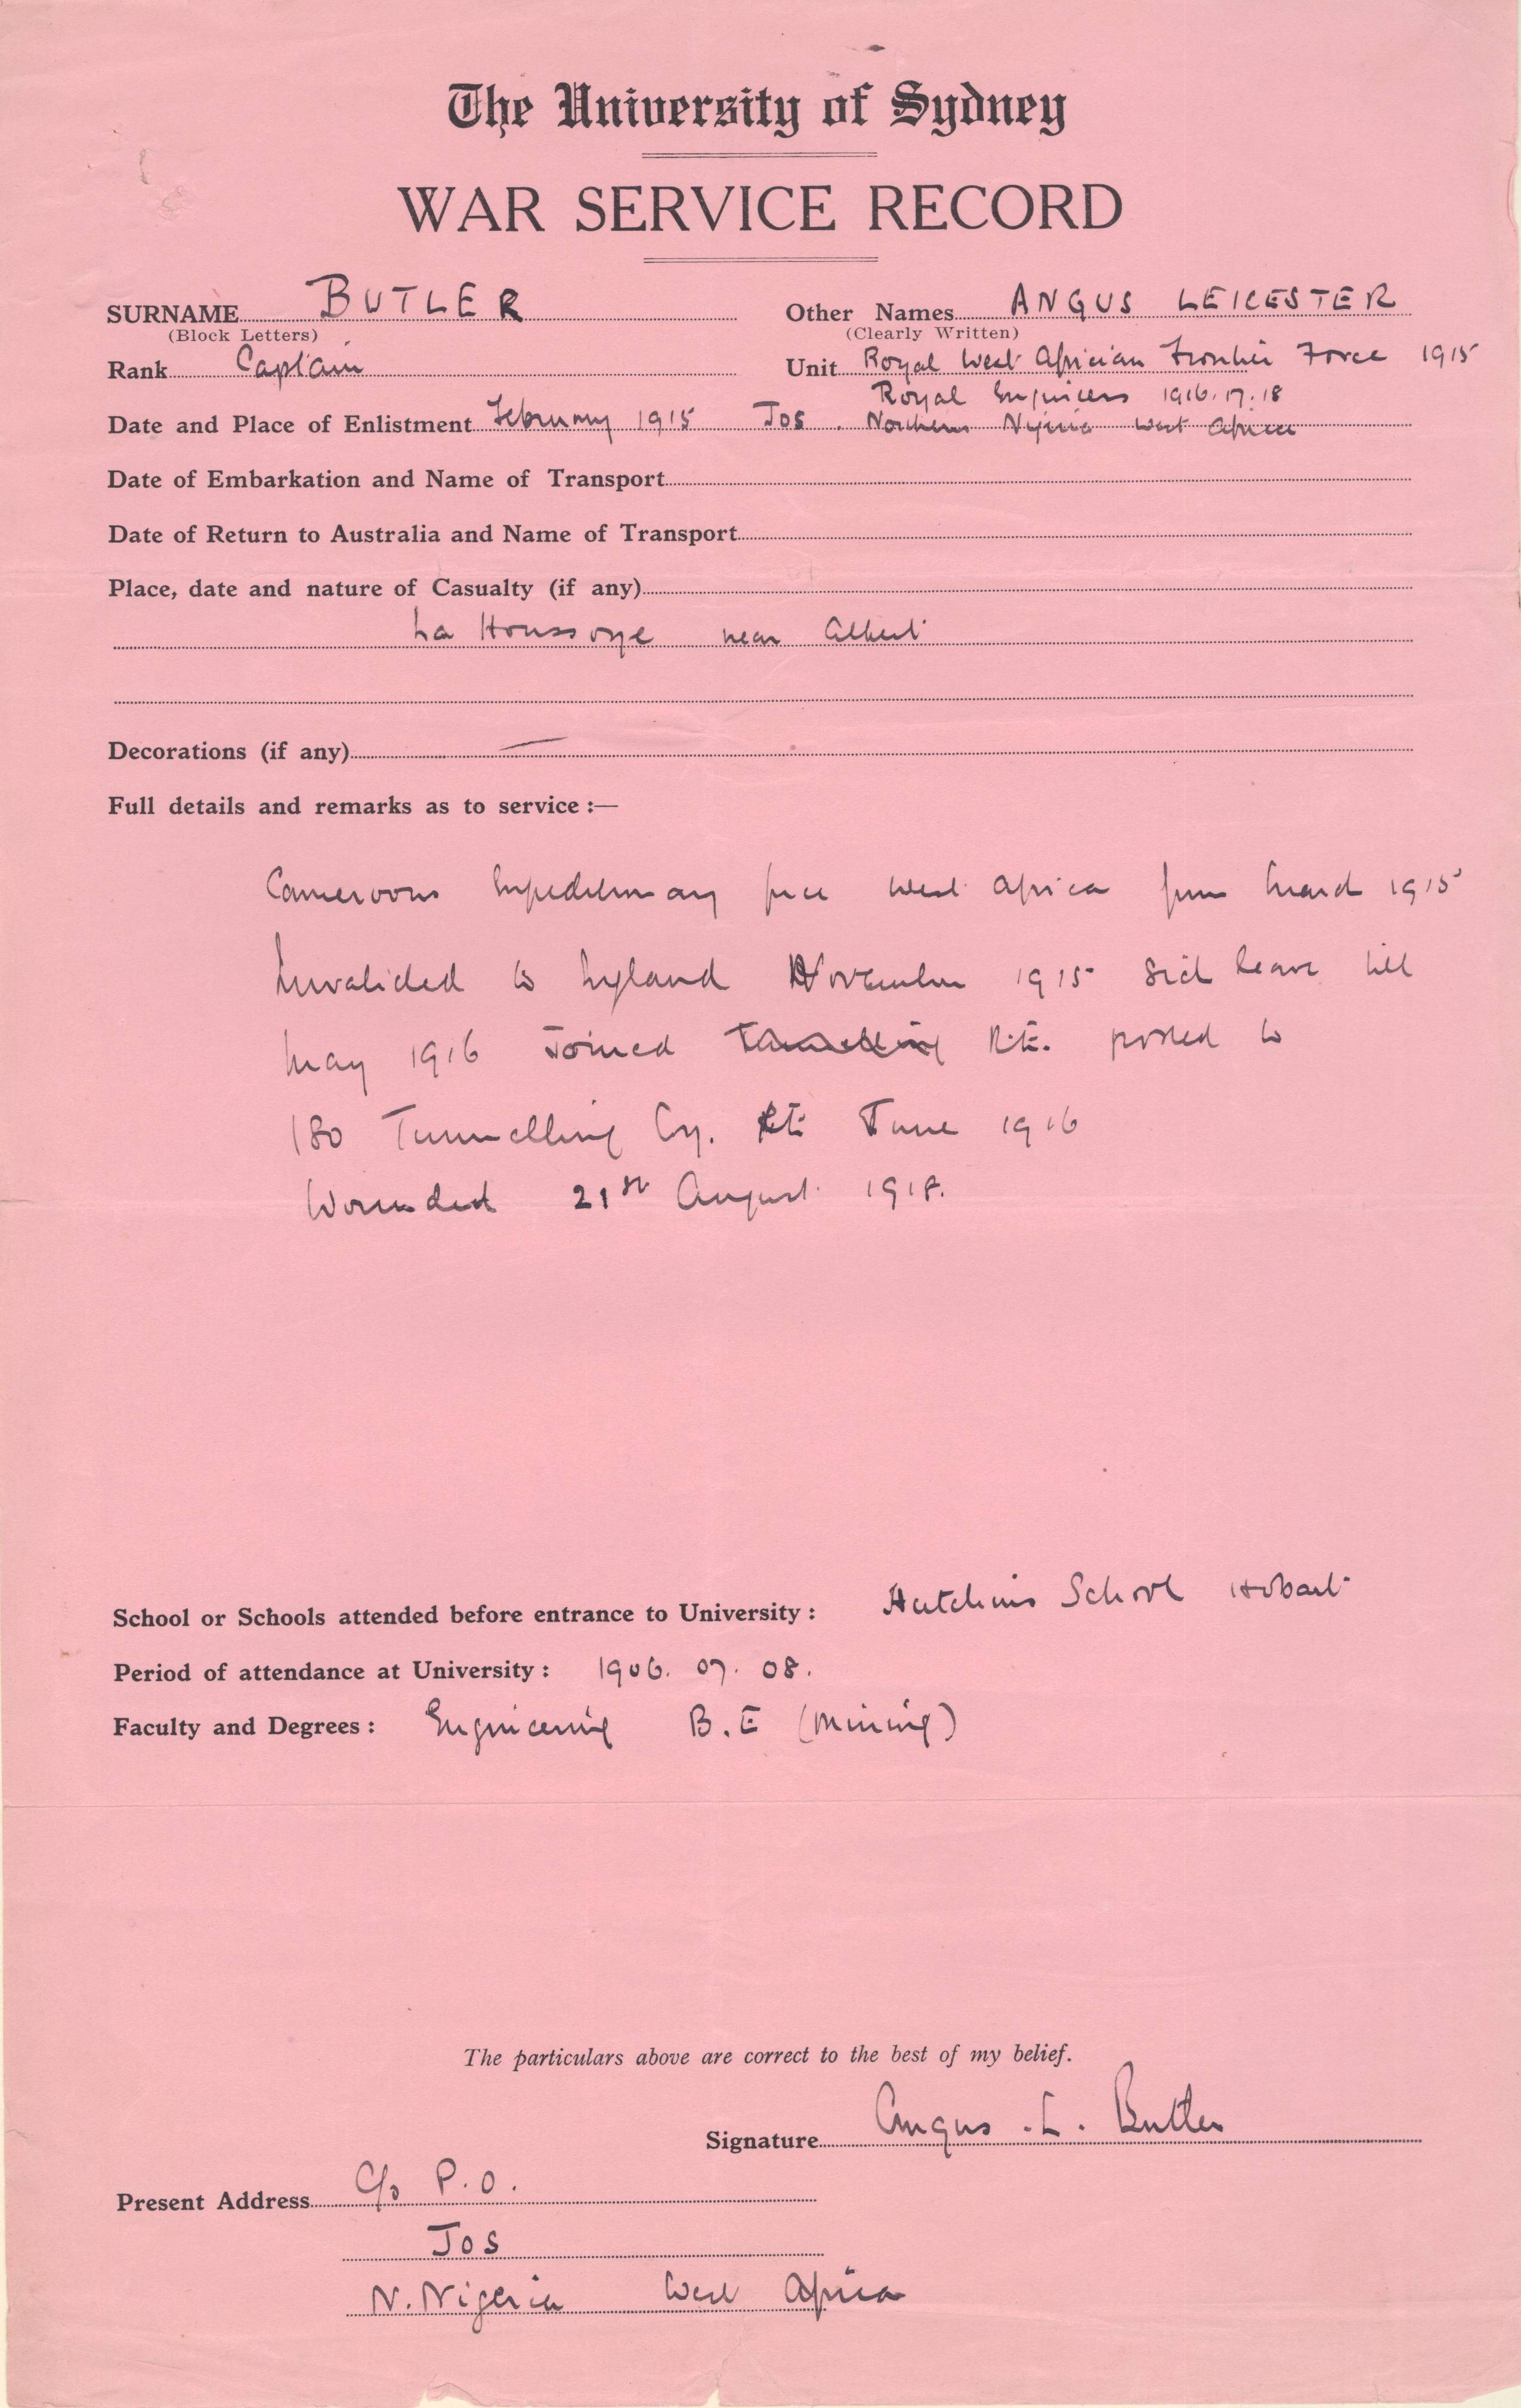 The University of Sydney
WAR SERVICE RECORD
SURNAME BUTLER Other Names ANGUS LEICESTER
(Block Letters) (Clearly Written)
Rank Captain Unit Royal West African Frontier Force 1915
Royal Engineers 1916.17.18
Date and Place of Enlistment February 1915 Jos. Northern Nigeria West Africa
Date of Embarkation and Name of Transport
Date of Return to Australia and Name of Transport
Place, date and nature of Casualty (if any)
La Houssoye near Albert
Decorations (if any) —
Full details and remarks as to service :—
Cameroons Expeditionary force West Africa from March 1915
Invalided to England November 1915 Sick leave till
May 1916 Joined Tunnelling R.E. posted to
180 Tunnelling Cy. R.E. June 1916
Wounded 21st August 1918.
School or Schools attended before entrance to University : Hutchins School Hobart
Period of attendance at University : 1906. 07. 08.
Faculty and Degrees : Engineering B.E (Mining)
The particulars above are correct to the best of my belief.
Signature Angus .L. Butler
Present Address C/o P.O.
Jos
N. Nigeria West Africa